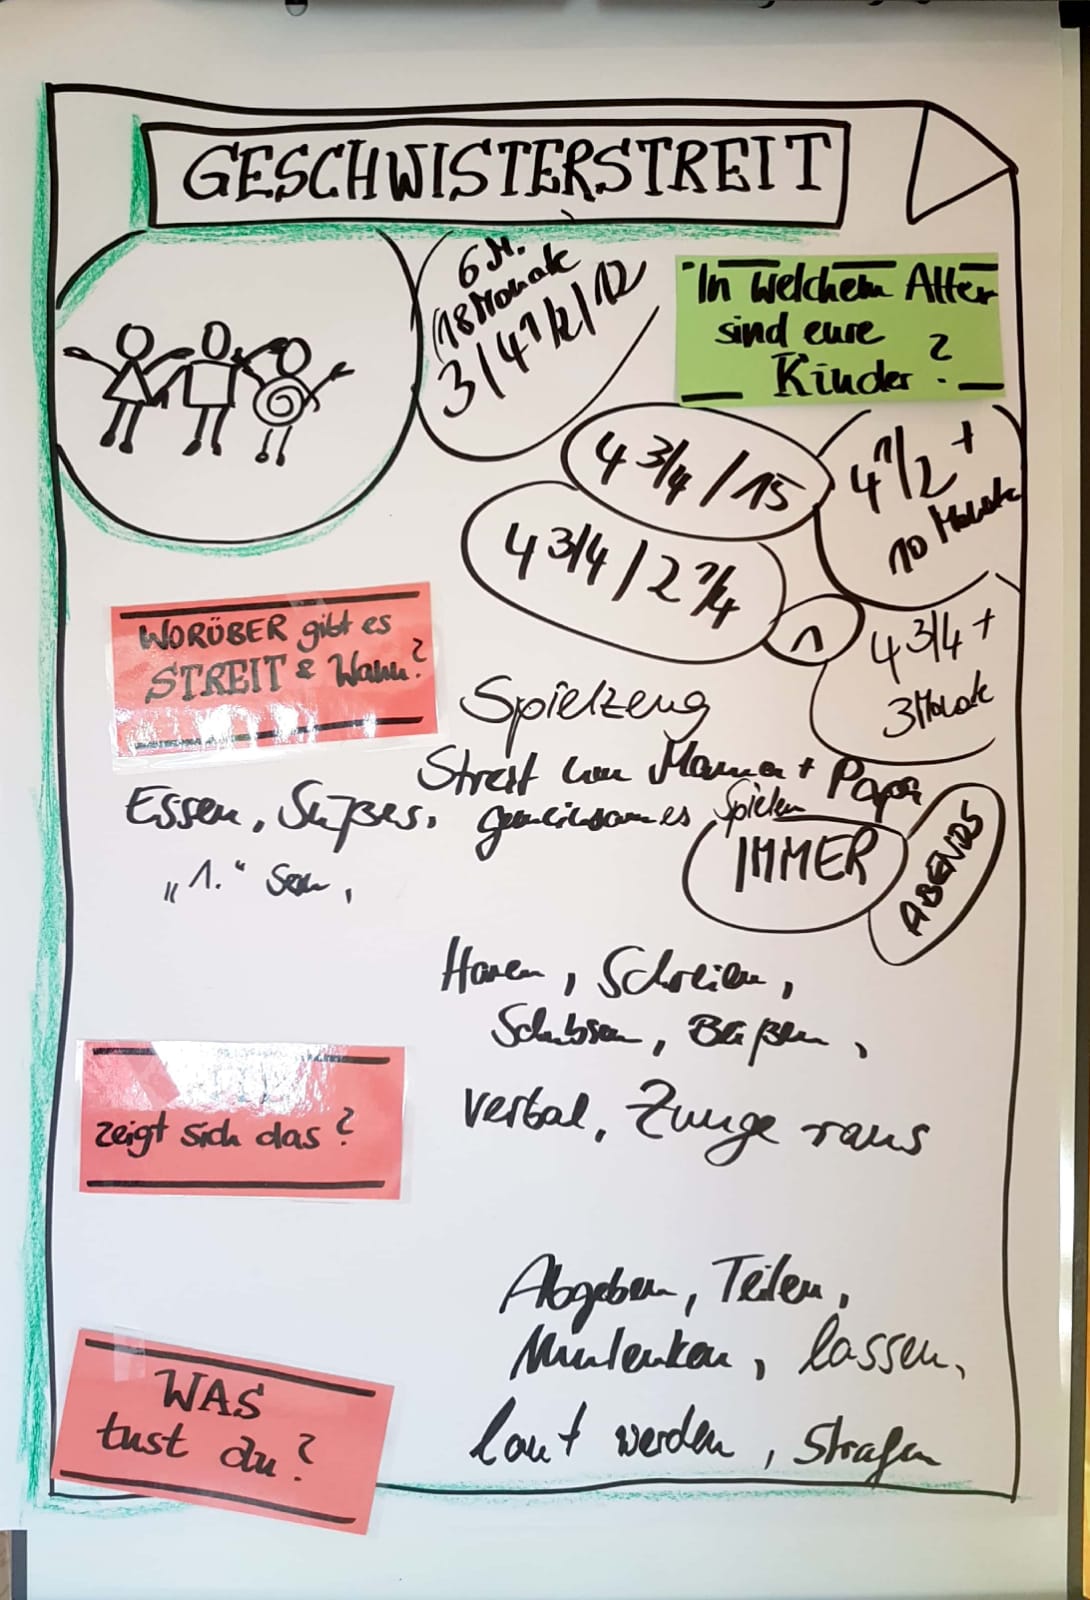 GESCHWISTERSTREIT
6 M.
(18 Monate
3/4 1/2/12
"In welchem Alter
sind eure
Kinder?
4 3/4 / 15
4 1/2 +
10 Monate
4 3/4 / 2 1/4
1
4 3/4 +
3 Monate
WORÜBER gibt es
STREIT & Wann?
Spielzeug
Streit um Mama + Papa
Essen, Süßes, gemeinsames Spielen
IMMER
ABENDS
„1.“ Sein,
Hauen, Schreien,
Schubsen, Beißen,
zeigt sich das?
verbal, Zunge raus
Abgeben, Teilen,
Umlenken, lassen,
WAS
tust du?
laut werden, Strafen